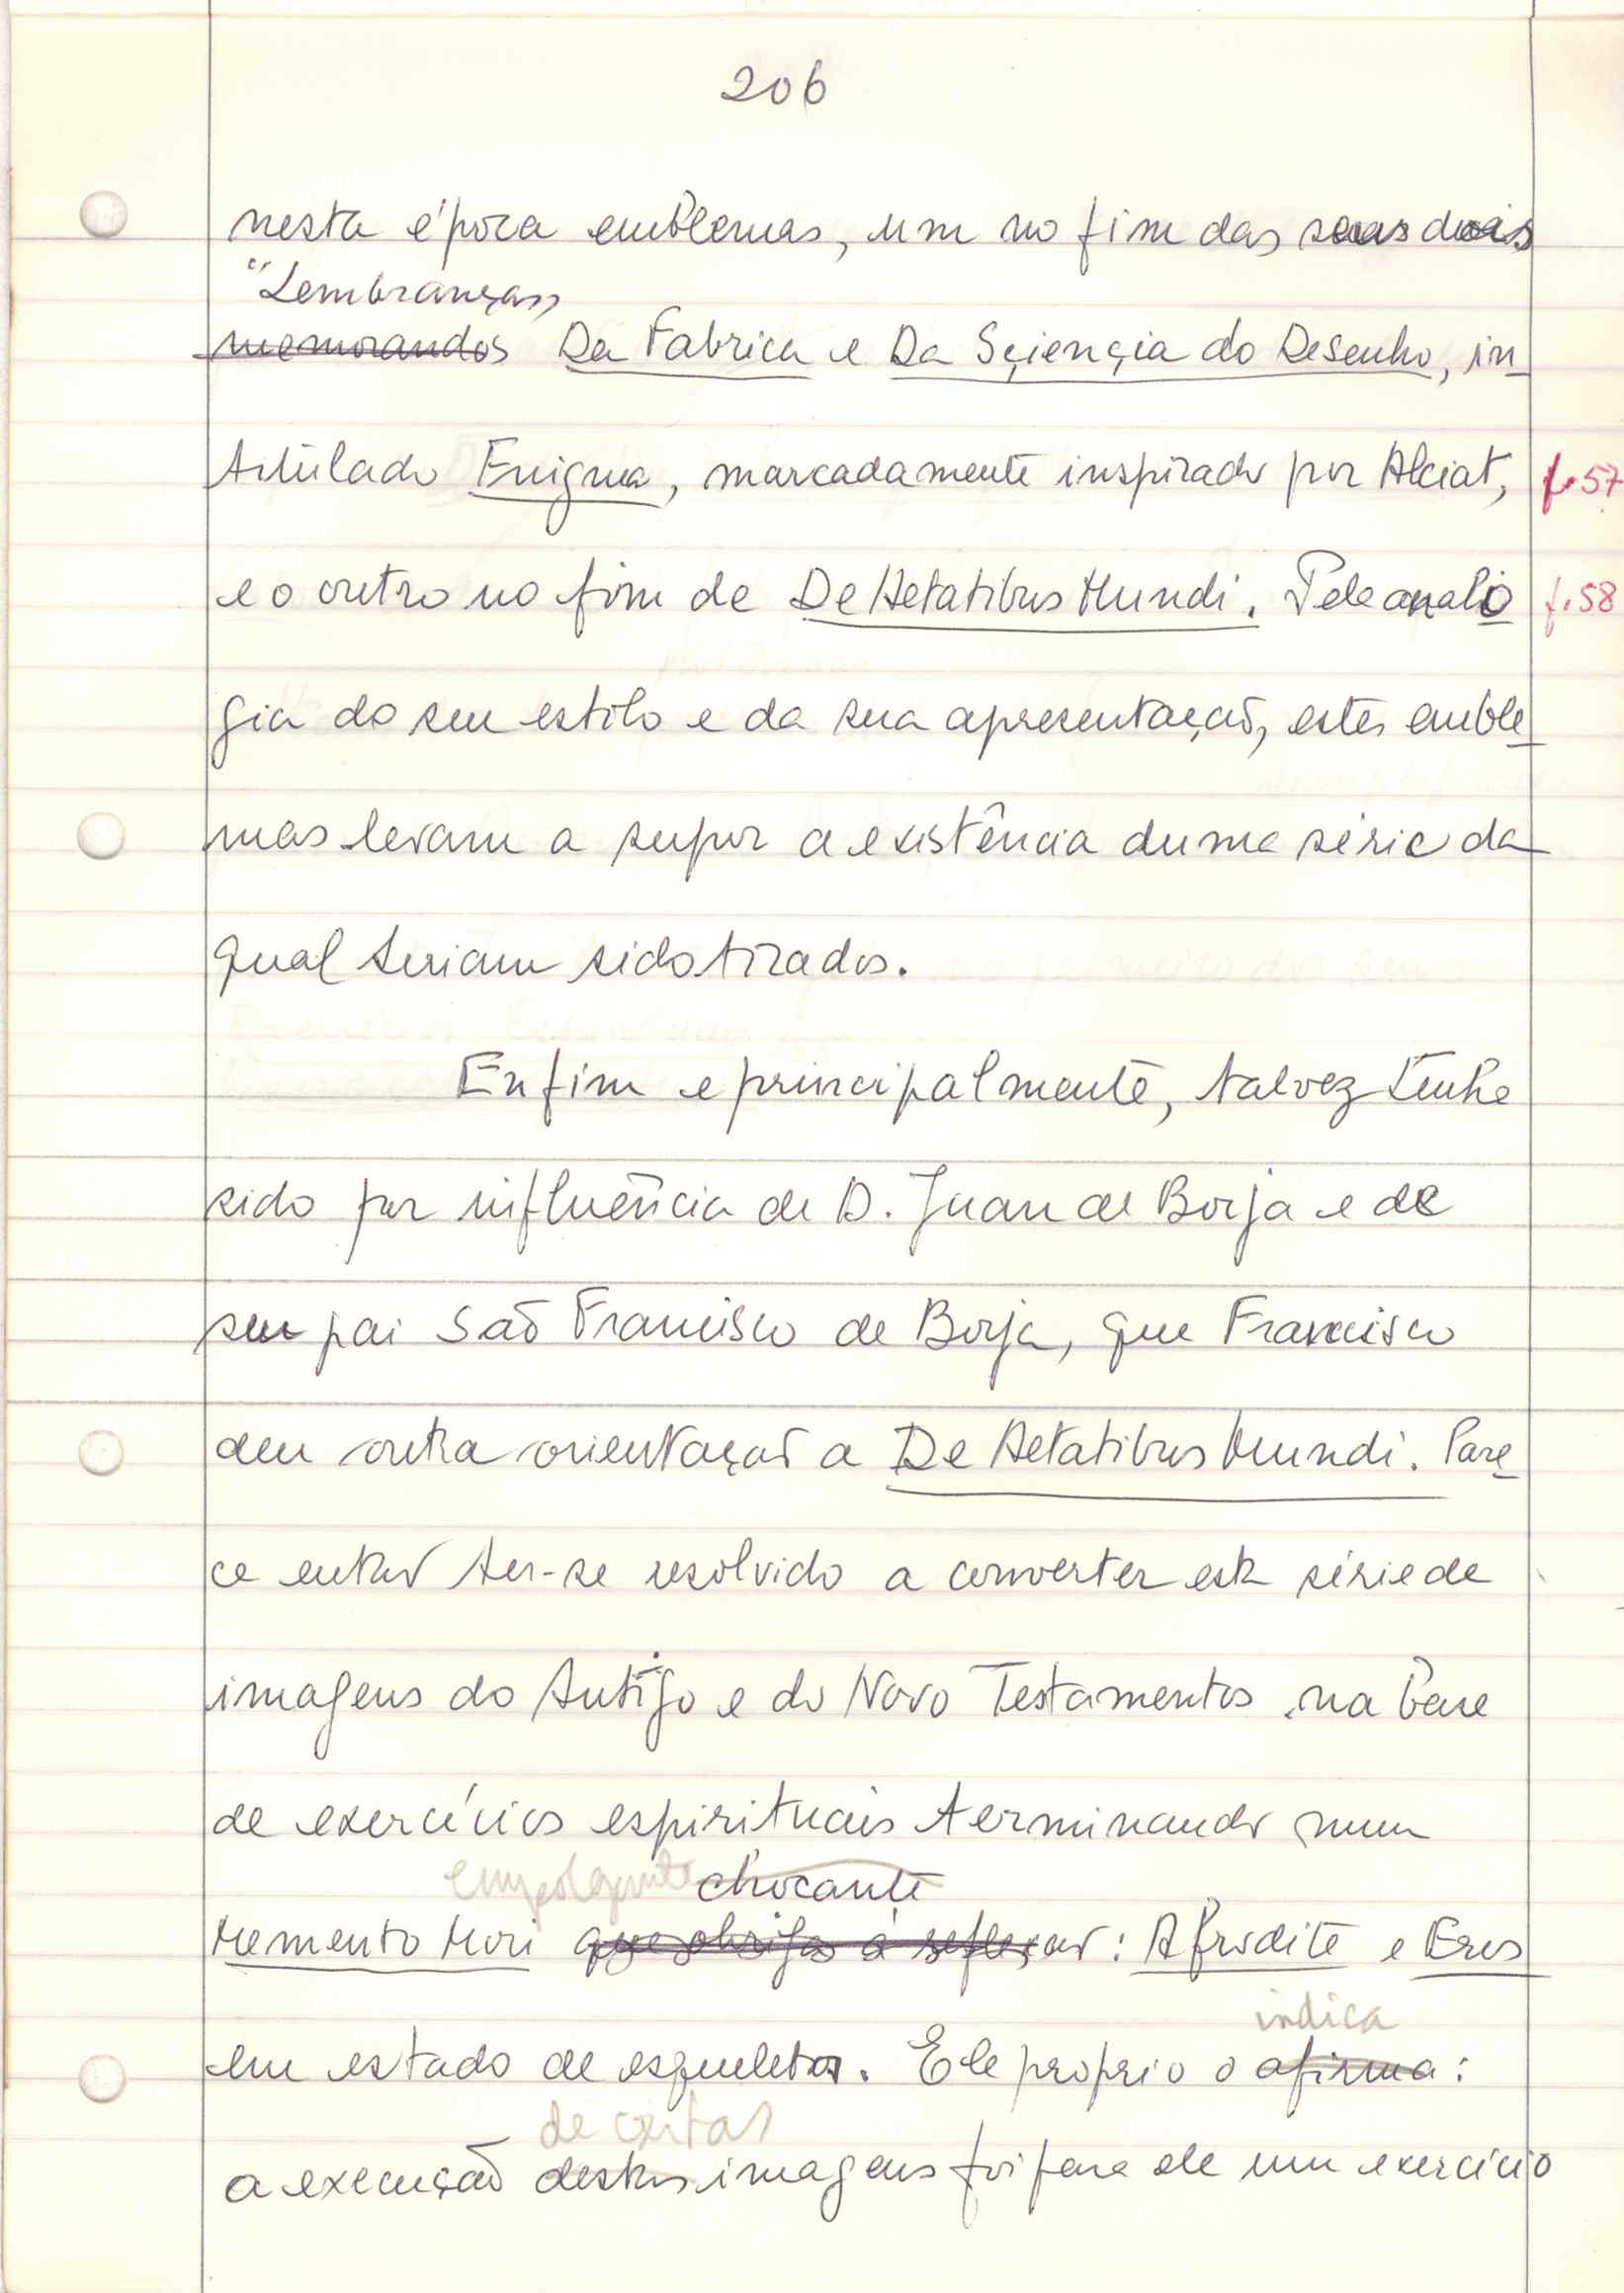 206
nesta época emblemas, um no fim das suas duas
"Lembranças"
memorandos Da Fabrica e Da Sçiençia do Desenho, in-
titulado Enigma, marcadamente inspirado por Alciat, f. 57
e o outro no fim de De Aetatibus Mundi. Pela analo- f. 58
gia do seu estilo e da sua apresentação, estes emble-
mas levam a supor a existência duma série da
qual teriam sido tirados.
Enfim e principalmente, talvez tenha
sido por influência de D. Juan de Borja e de
seu pai São Francisco de Borja, que Francisco
deu outra orientação a De Aetatibus Mundi. Pare-
ce então ter-se resolvido a converter esta série de
imagens do Antigo e do Novo Testamentos na base
de exercícios espirituais terminando num
empolgante chocante
Memento Mori que obriga à reflexão: Afrodite e Eros
indica
em estado de esqueletos. Ele proprio o afirma:
de certas
a execução destas imagens foi para ele um exercício